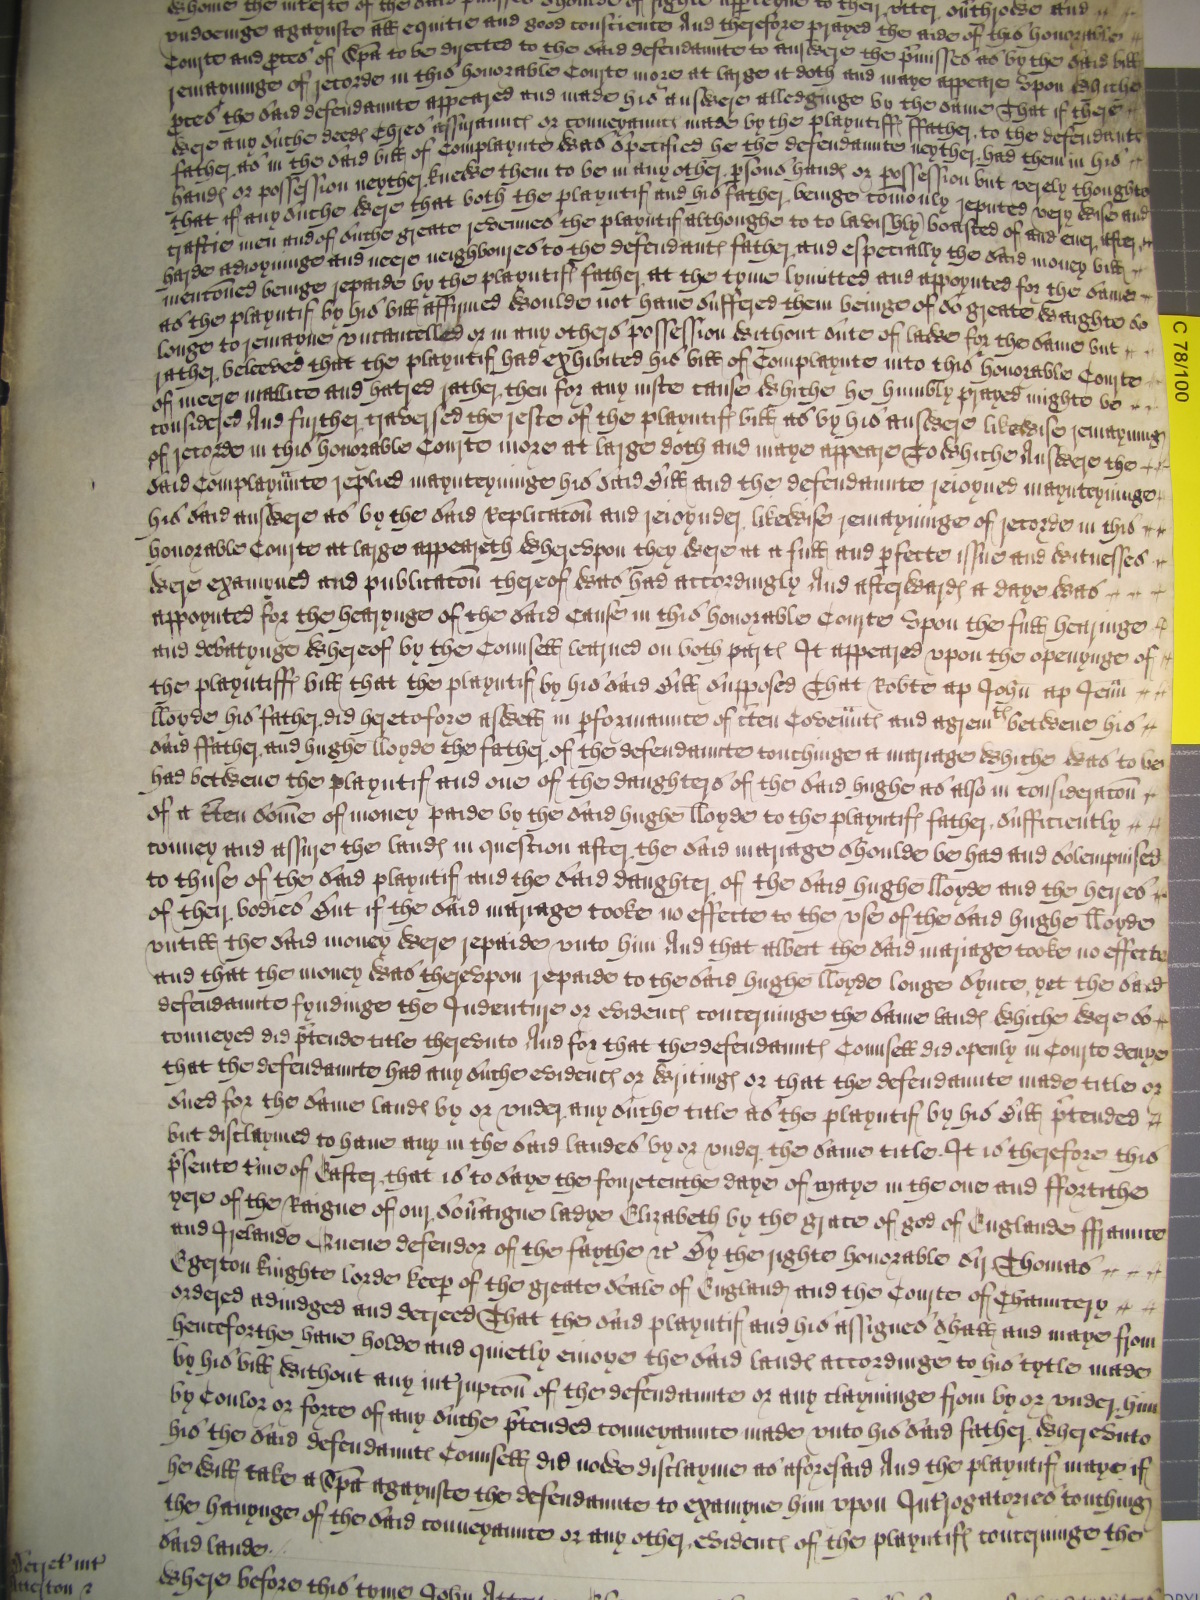 whome the interte of the said shoulde of righte apperteyne to their utter overthrowe and
undoeinge agaynste all equitie and good conscience And therefore prayed the aide of this honorable
Courte and pces of Spa to be directed to the said defendaunte to answere the pmisses as by the said bill
remayninge of recorde in this honorable Courte more at large it doth and maye appeare Upon whiche
pces the said defendaunte appeared and made his answere alledginge by the same That if there
were any suche deedes assurannces or conveyannces made by the playntiffes ffather to the defendants
father as in the said bill of Complaynte was specified he the defendaunte neyther had them in his
handes or possession neyther knewe them to be in any other psons handes or possession but verely thoughte
that if any suche were that both the playntif and his father beinge comonly reputed very wise and
craftie men and of suche greate revenues the playntif althoughe to to lavishly boasted of and ever after
harde adioyninge and neere neighboures to the defendantes father and especially the said money bill
mentoned beinge repaide by the playntifes father at the tyme lymitted and appoynted for the same
as the playntif by his bill affirmed woulde not have suffered them beinge of so greate waighte so
longe to remayne uncancelled or in any others possession without suite of lawe for the same but
rather beleeved that the playntif had exhibited his bill of Complaynte into this honorable Courte
of meere mallice and hatred rather then for any iuste cause whiche he humbly prayed mighte be
considered And further traversed the reste of the playntifes bill as by his answere likewise remayning
of recorde in this honorable Courte more at large doth and maye appeare To whiche Answere the
said Complaynante replied maynteyninge his said Bill and the defendaunte reioyned maynteyninge
his said answere as by the said Replicacon and reioynder likewise remayninge of recorde in this
honorable Courte at large appeareth Whereupon they were at a full and pfecte issue and witnesses
were examyned and publicacon thereof was had accordingly And afterwardes a daye was
appoynted for the hearynge of the said Cause in this honorable Courte Upon the full hearinge
and debatynge whereof by the Counsell learned on both partes It appeared upon the openynge of
the playntiffes bill that the playntif by his said Bill supposed That Robte ap John ap Jeun
lloyde his father did heretofore aswell in pformannce of cten Covenntes and agremtes betwene his
said ffather and hughe lloyde the father of the defendaunte touchinge a mariage whiche was to be
had betwene the playntif and one of the daughters of the said hughe as also in consideracon
of a cten some of money paide by the said hughe lloyde to the playntifes father sufficiently
convey and assure the landes in question after the said mariage shoulde be had and solempnised
to thuse of the said playntif and the said daughter of the said hughe lloyde and the heires
of their bodies But if the said mariage tooke no effecte to the use of the said hughe lloyde
untill the said money were repaide unto him And that albeit the said mariage tooke no effecte
and that the money was thereupon repaide to the said hughe lloyde longe synce yet the said
defendaunte fyndinge the Indenture or evidences concerninge the same landes whiche were so
conveyed did ptende title thereunto And for that the defendanntes Counsell did openly in Courte denye
that the defendaunte had any suche evidences or writinges or that the defendaunte made title or
sued for the same landes by or under any suche title as the playntif by his Bill ptended
but disclaymed to have any in the said landes by or under the same title It is therefore this
psente tme of Easter that is to saye the fouretenthe daye of Maye in the one and ffortithe
yere of the Raigne of our Soveraigne ladye Elizabeth by the grace of god of Englande ffraunce
and Irelande Quene defendor of the faythe &c By the righte honorable Sir Thomas
Egerton knighte lorde keep of the greate Seale of England and the Courte of Chauncery
ordered adiudged and decreed That the said playntif and his assignes shall and maye from
henceforthe have holde and quietly enioye the said landes accordinge to his tytle made
by his bill without any intrupcon of the defendaunte or any clayminge from by or under him
by Coulor or force of any suche ptended conveyannce made unto his said father whereunto
his the said defendanntes Counsell did nowe disclayme as aforesaid And the playntif maye if
he will take a Spa agaynste the defendaunte to examyne him upon Introgatories touching
the havynge of the said conveyannce or any other evidences of the playntifes concerninge the
said lande
Decret int
Where before this tyme John